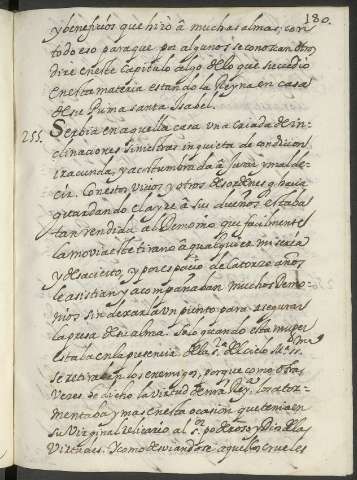 180.
y beneficios que hizo â muchas almas, con
todo eso para que por algunos se conoscan otros
dire en este Capitulo algo delo que sucedio
en esta materia estando la Reyna en casa
de su Prima santa Isabel.
255. Serbia en aquella casa vna criada de in-
clinaciones siniestras inquieta de condicion
iracunda, y acostumbrada â Jurar y malde-
cir. Con estos vicios y otros desordenes q hacia
guardando el ayre â sus dueños estaba
tan rendida al Demonio que facilmente
la movia este tirano â qualquiera miseria
y desacierto, y por espacio de catorze años
le asistian y acompañaban muchos Demo-
nios sin dexarla vn punto para asegurar
la presa de su alma. Solo quando esta muger
estaba en la presencia de la s.ra del cielo M.a ss.
se retiraban los enemigos, porque como otras
veces he dicho la virtud de nra Rey.a los ator-
mentaba y mas en esta ocasion que tenia en
su Virginal relicario al s.r poderoso y Dios de las
Virtudes. Y como desviandose aquellos crueles